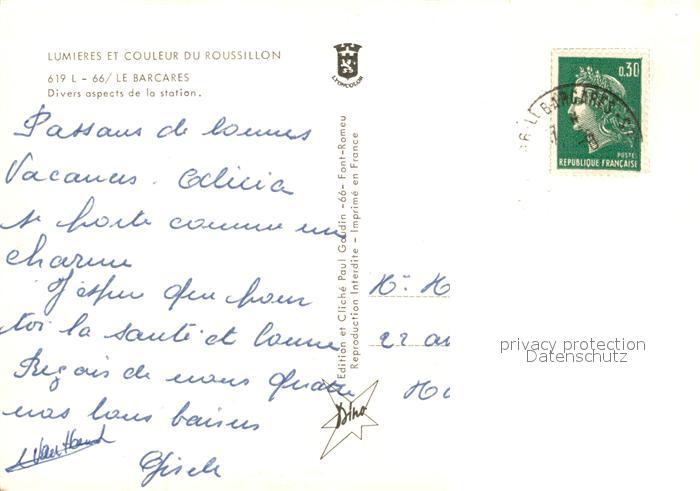 LUMIERES ET COULEUR DU ROUSSILLON
619 L - 66/ LE BARCARES
Divers aspects de la station.
Passons de bonnes
Vacances. Alicia
se porte comme un
charme
J'espère que pour
toi la santé est bonne
Reçois de nous quatre
nos bons baisers
Gisèle
LYONCOLOR
Edition et Cliché Paul Gaudin -66- Font-Romeu
Reproduction Interdite - Imprimé en France
Dino
0.30
LE BARCARES
POSTES
REPUBLIQUE FRANÇAISE
22
privacy protection
Datenschutz